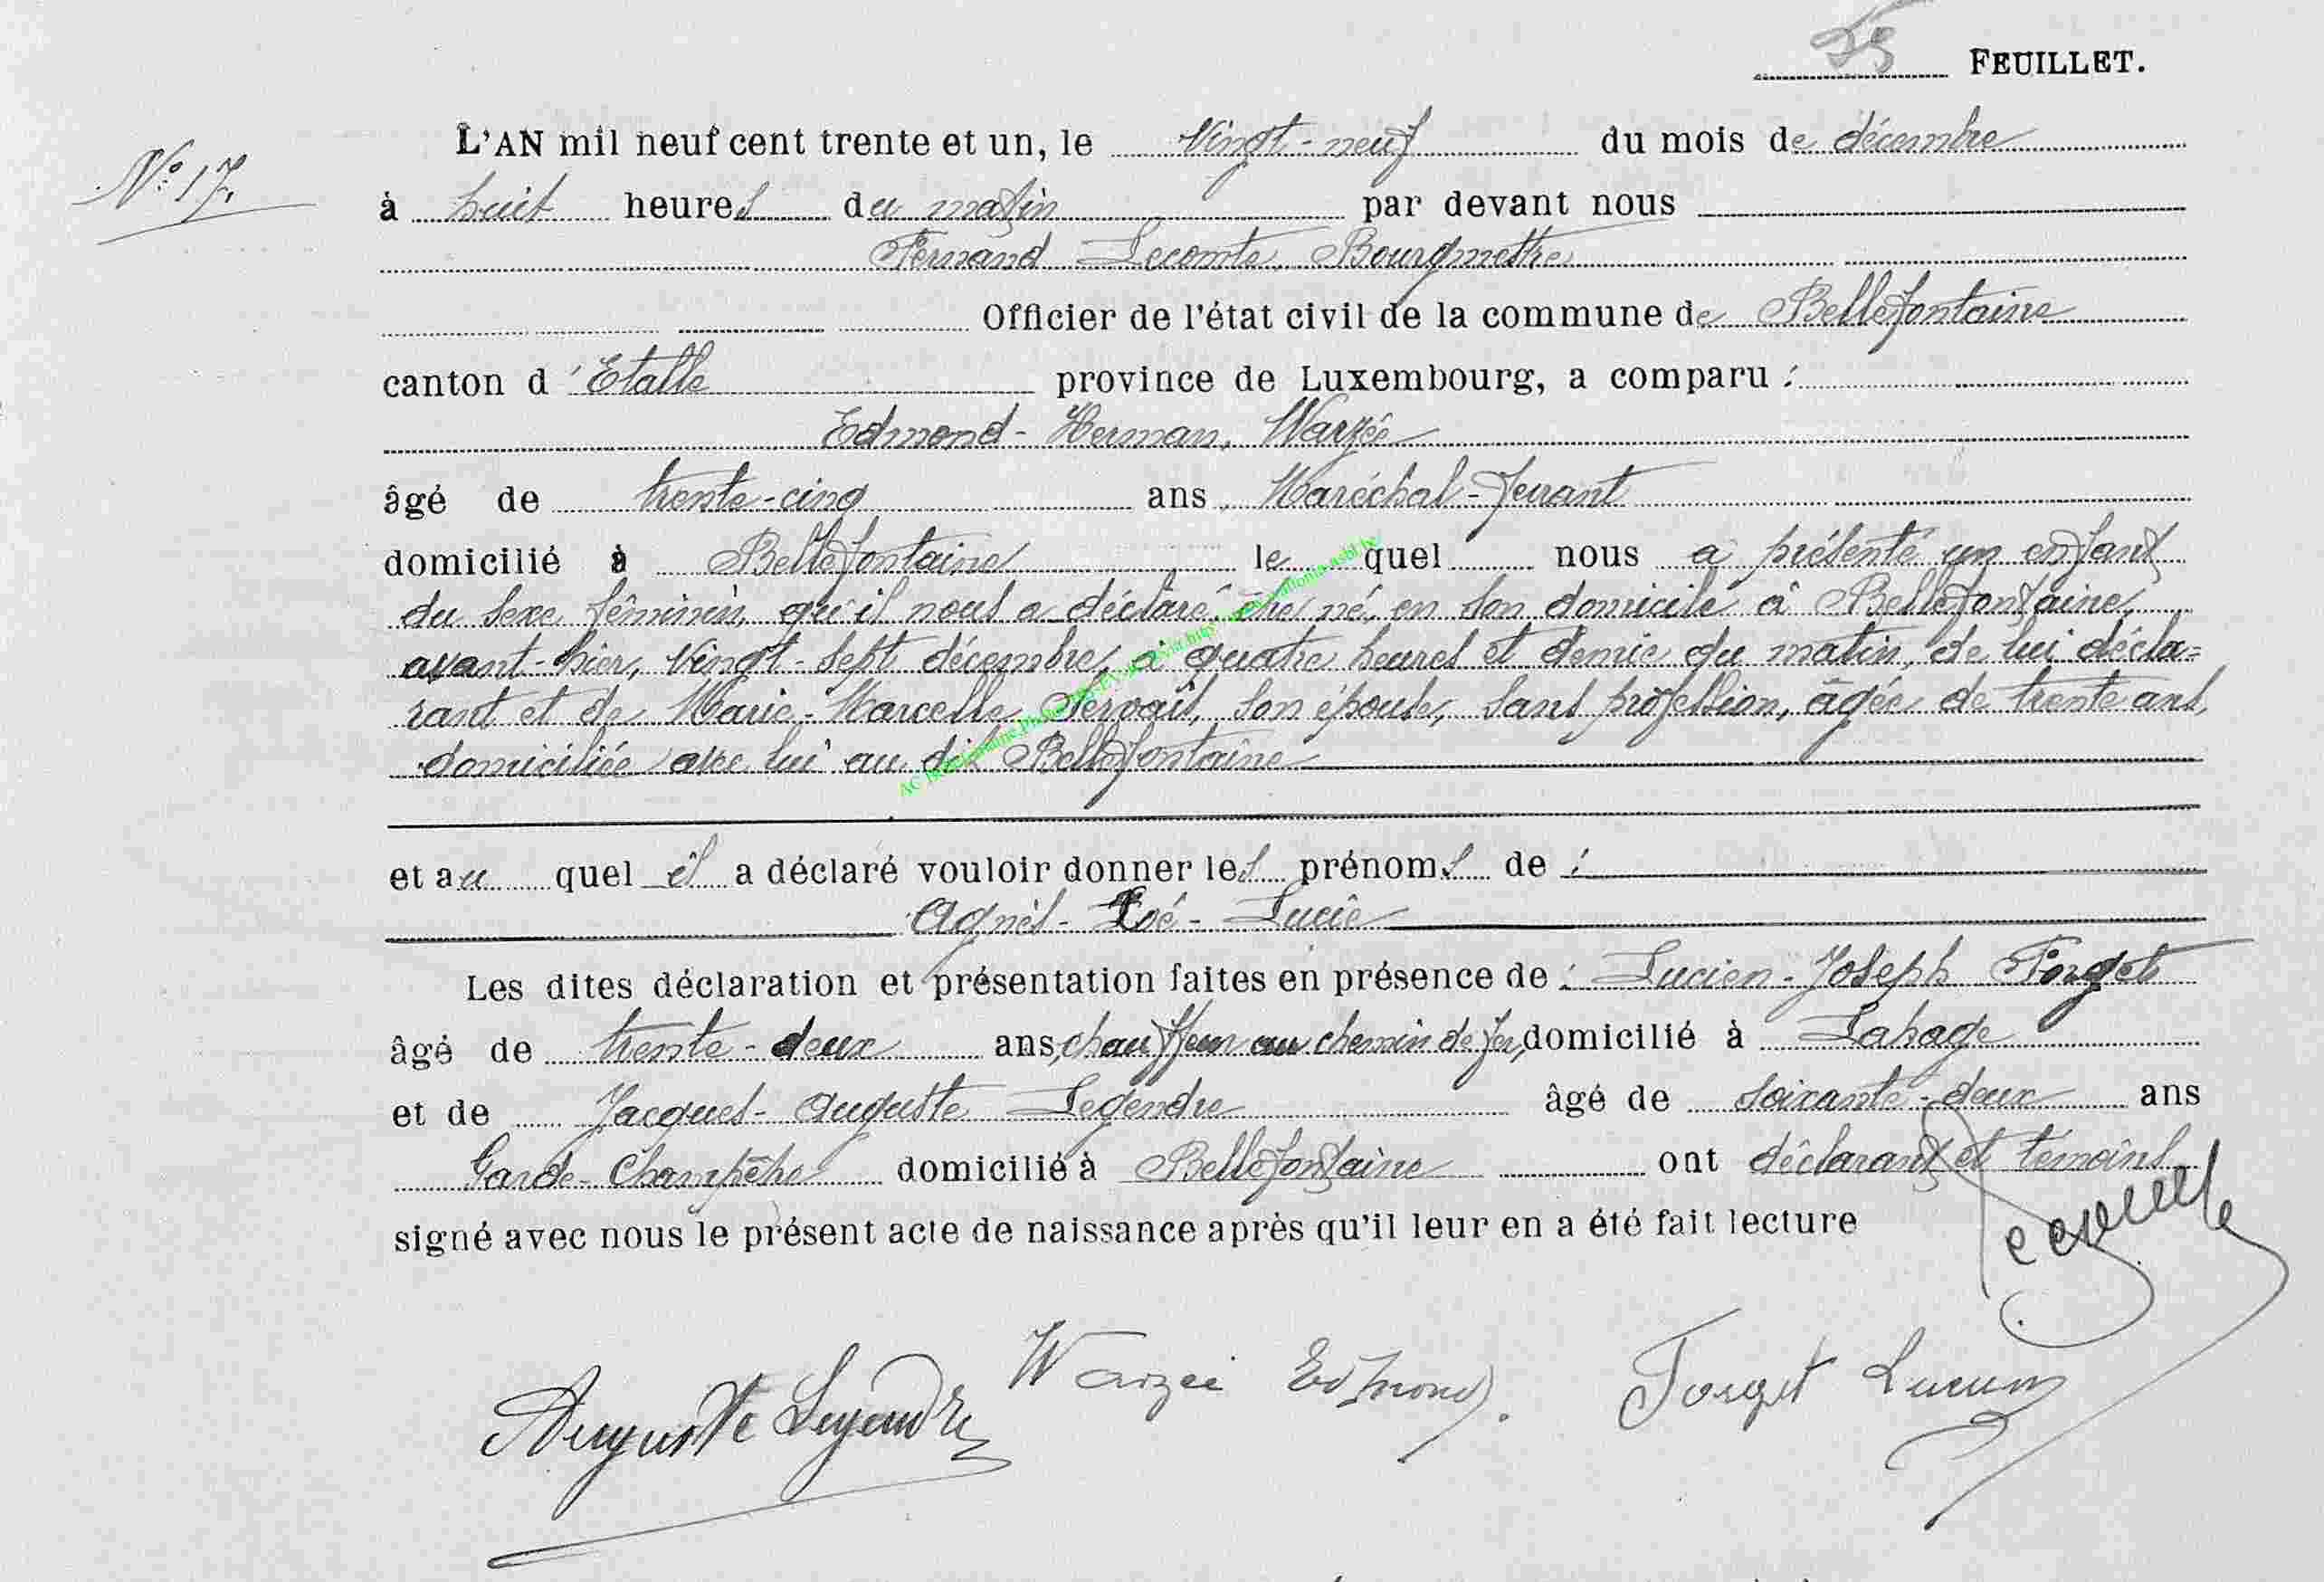 25 FEUILLET.
N° 17.
L'AN mil neuf cent trente et un, le Vingt-neuf du mois de décembre
à huit heures du matin par devant nous
Fernand Lecomte, Bourgmestre
Officier de l'état civil de la commune de Bellefontaine
canton d'Etalle province de Luxembourg, a comparu :
Edmond-Herman, Warzée
âgé de trente-cinq ans, Maréchal-ferrant
domicilié à Bellefontaine le quel nous a présenté un enfant
du sexe féminin, qu'il nous a déclaré être né, en son domicile à Bellefontaine,
avant-hier, vingt-sept décembre, à quatre heures et demie du matin, de lui décla=
rant et de Marie-Marcelle Servais, son épouse, sans profession, âgée de trente ans,
domiciliée avec lui au dit Bellefontaine
et au quel il a déclaré vouloir donner les prénoms de :
Agnès-Zoé-Lucie
Les dites déclaration et présentation faites en présence de : Lucien-Joseph Forget
âgé de trente-deux ans, chauffeur au chemin de fer, domicilié à Lahage
et de Jacques-Auguste Legendre âgé de soixante-deux ans
Garde-Champêtre domicilié à Bellefontaine ont déclarant et témoins
signé avec nous le présent acte de naissance après qu'il leur en a été fait lecture
Lecomte
Auguste Legendre Warzée Edmond. Forget Lucien